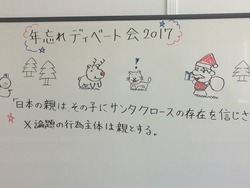 年忘れディベート会2017
「日本の親はその子にサンタクロースの存在を信じさ
※論題の行為主体は親とする。